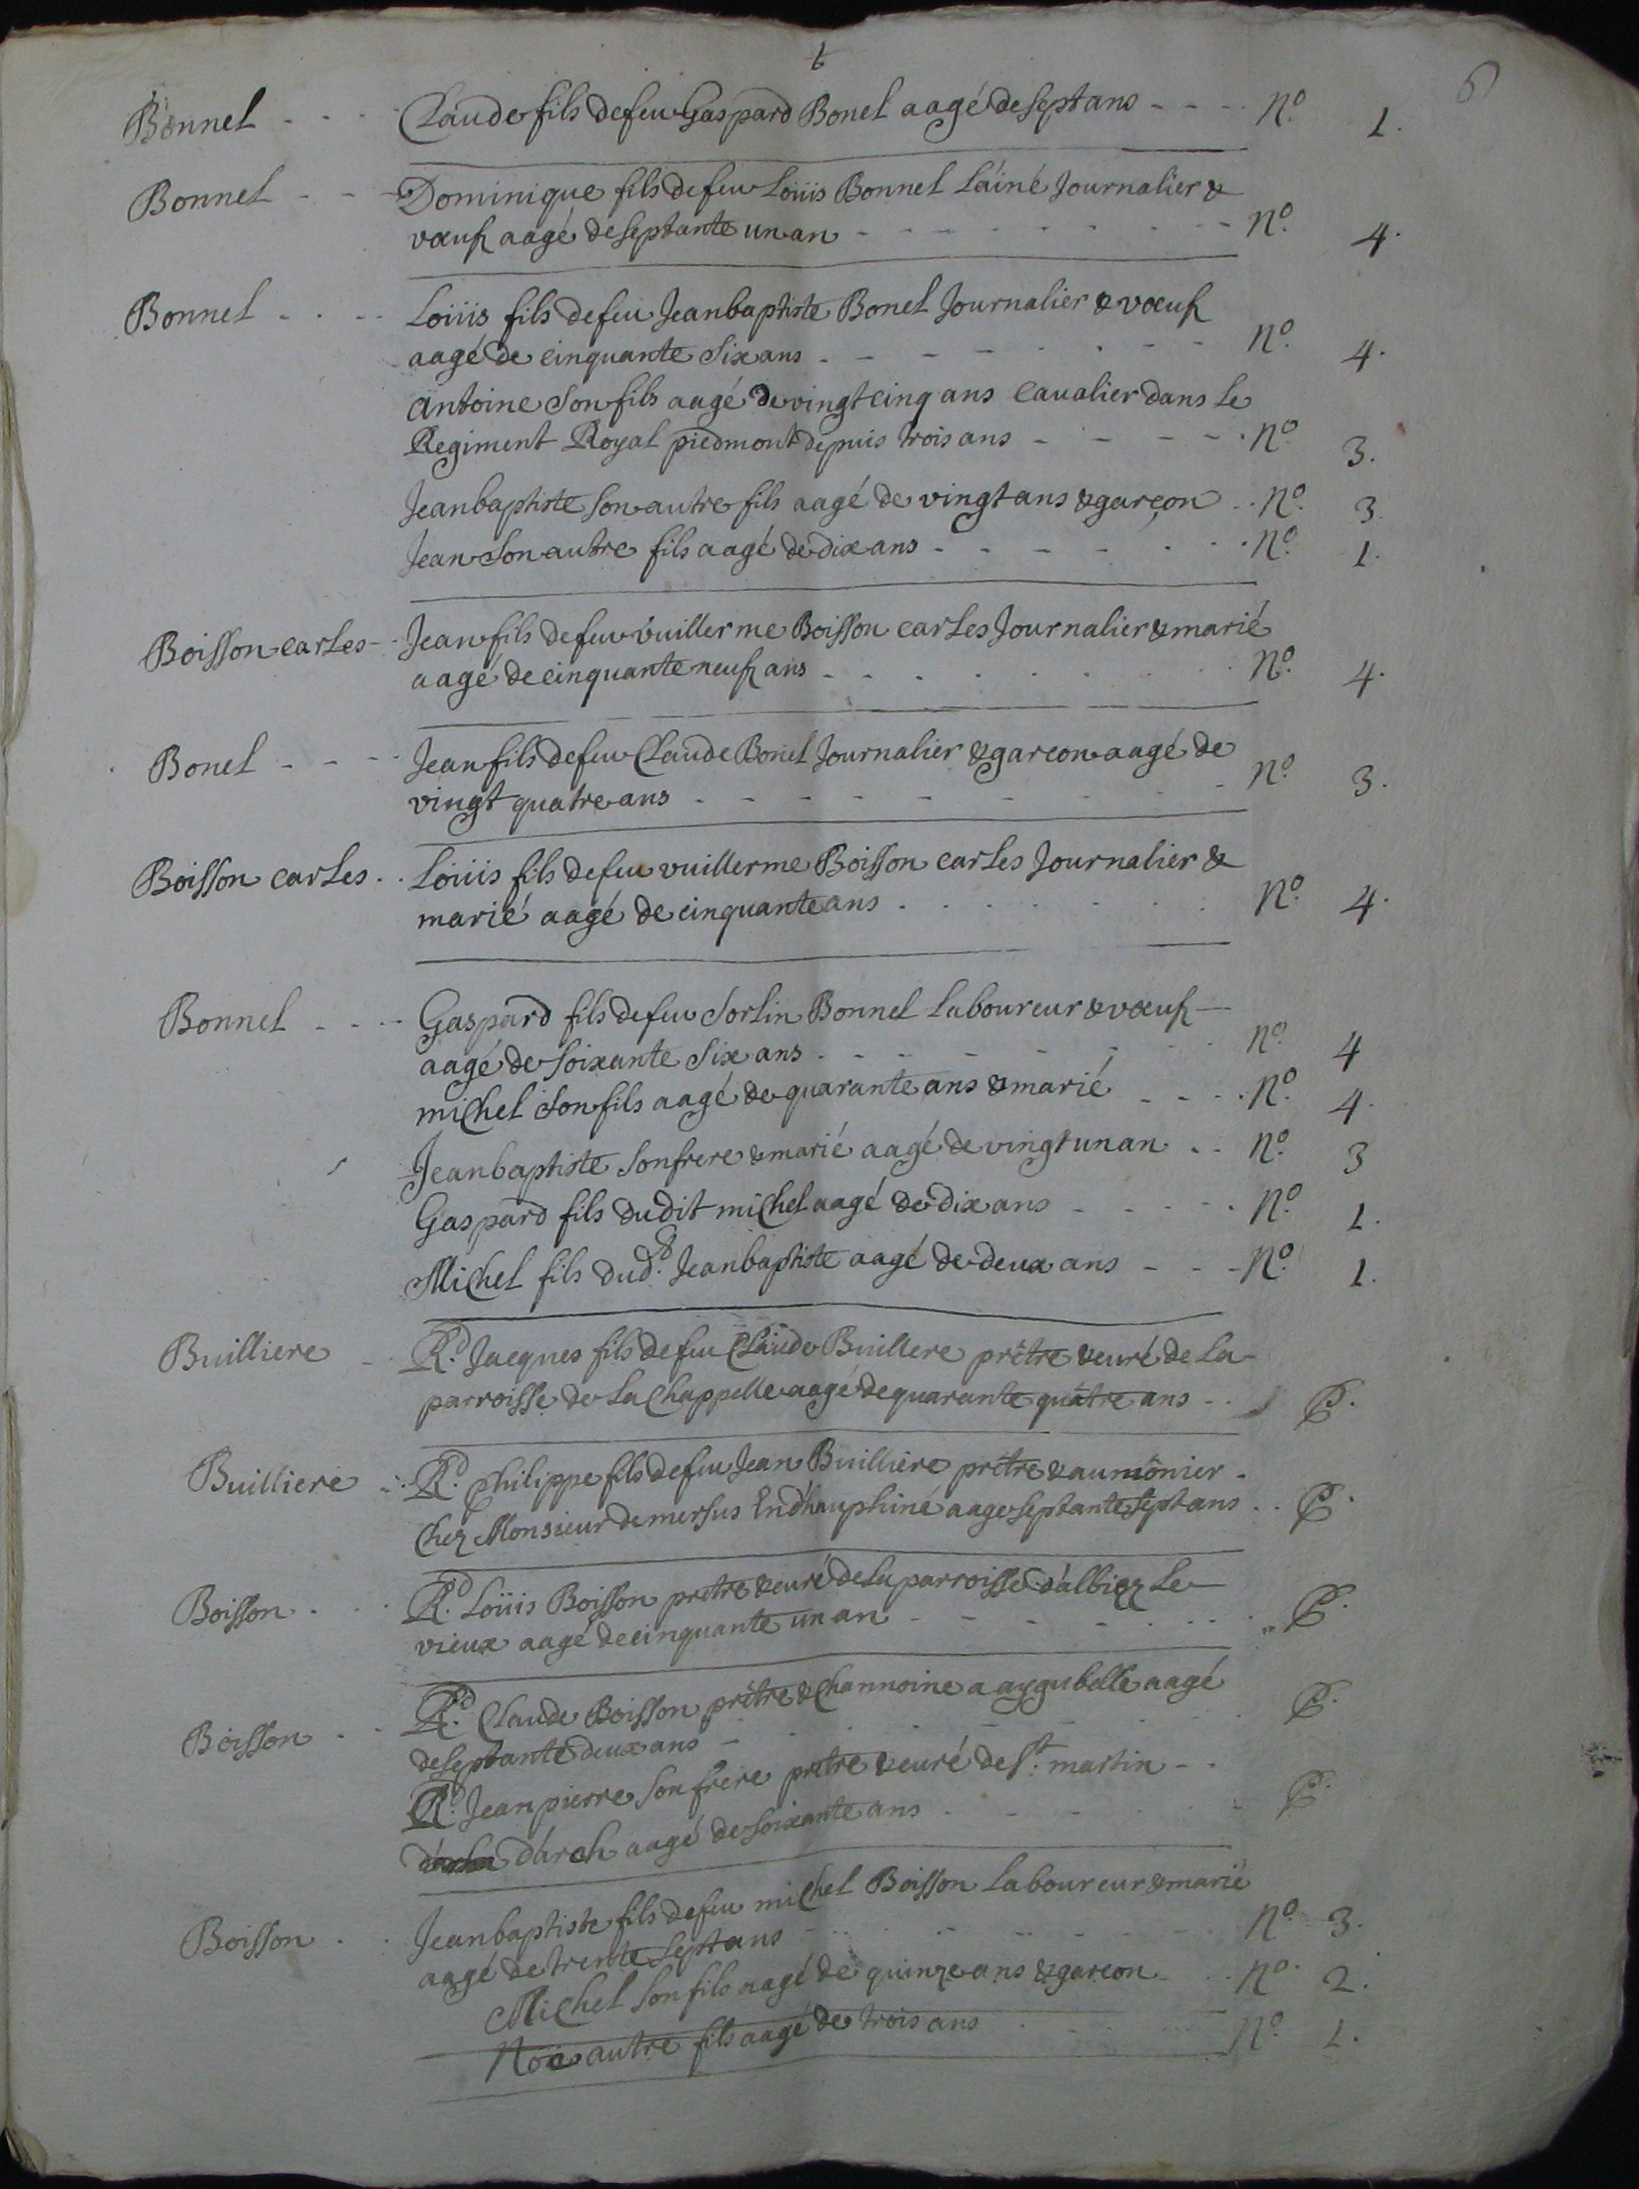 6
6
Bonnel - - - Claude fils de feu Gaspard Bonel aagé de sept ans - - - - N.o 1.
Bonnel - - - Dominique fils de feu Loüis Bonnel L'ainé Journalier &
vœuf aagé de septante un an - - - - - - - - N.o 4.
Bonnel - - - - Loüis fils de feu Jeanbaptiste Bonel Journalier & vœuf
aagé de cinquante six ans - - - - - - - - N.o 4.
Antoine son fils aagé de vingt cinq ans Caualier dans Le
Regiment Royal piedmont depuis trois ans - - - - - N.o 3.
Jeanbaptiste son autre fils aagé de vingt ans & garçon . . N.o 3.
Jean son autre fils aagé de dix ans - - - - - - - N.o 1.
Boisson carles - Jean fils de feu vuillerme Boisson carles Journalier & marié
aagé de cinquante neuf ans - - - - - - - - N.o 4.
Bonel - - - - Jean fils de feu Claude Bonel Journalier & garcon aagé de
vingt quatre ans - - - - - - - - - - N.o 3.
Boisson carles . . Loüis fils de feu vuillerme Boisson carles Journalier &
marié aagé de cinquante ans . . . . . . . N.o 4.
Bonnel - - - - Gaspard fils de feu Sorlin Bonnel Laboureur & vœuf -
aagé de soixante six ans - - - - - - - - N.o 4
michel son fils aagé de quarante ans & marié - - - - N.o 4.
Jeanbaptiste son frere & marié aagé de vingt un an . . N.o 3
Gaspard fils dudit michel aagé de dix ans - - - - - N.o 1.
Michel fils dud.t Jeanbaptiste aagé de deux ans - - - N.o 1.
Builliere - - R.d Jacques fils de feu Claude Buillere prêtre & curé de La
parroisse de La Chappelle aagé de quarante quatre ans - . E.
Builliere - . R.d philippe fils de feu Jean Builliere prêtre & aumônier -
Chez Monsieur de mersus En dhauphiné aage septante sept ans . . E.
Boisson . . . R.d Loüis Boisson prêtre & curé de La parroisse d'albiez Le
vieux aagé de cinquante un an - - - - - - - E.
Boisson . . R.d Claude Boisson prêtre & Channoine a aygubelle aagé
de septante deux ans - - - - - - - E.
R.d Jean pierre son frere prêtre & curé de S.t martin - -
d'arch aagé de soixante ans - - - - - - E.
Boisson . . Jeanbaptiste fils de feu michel Boisson Laboureur & marié
aagé de trente sept ans - - - - - - - N.o 3.
Michel son fils aagé de quinze ans & garcon . . N.o 2.
Noë autre fils aagé de trois ans . . . . N.o 1.